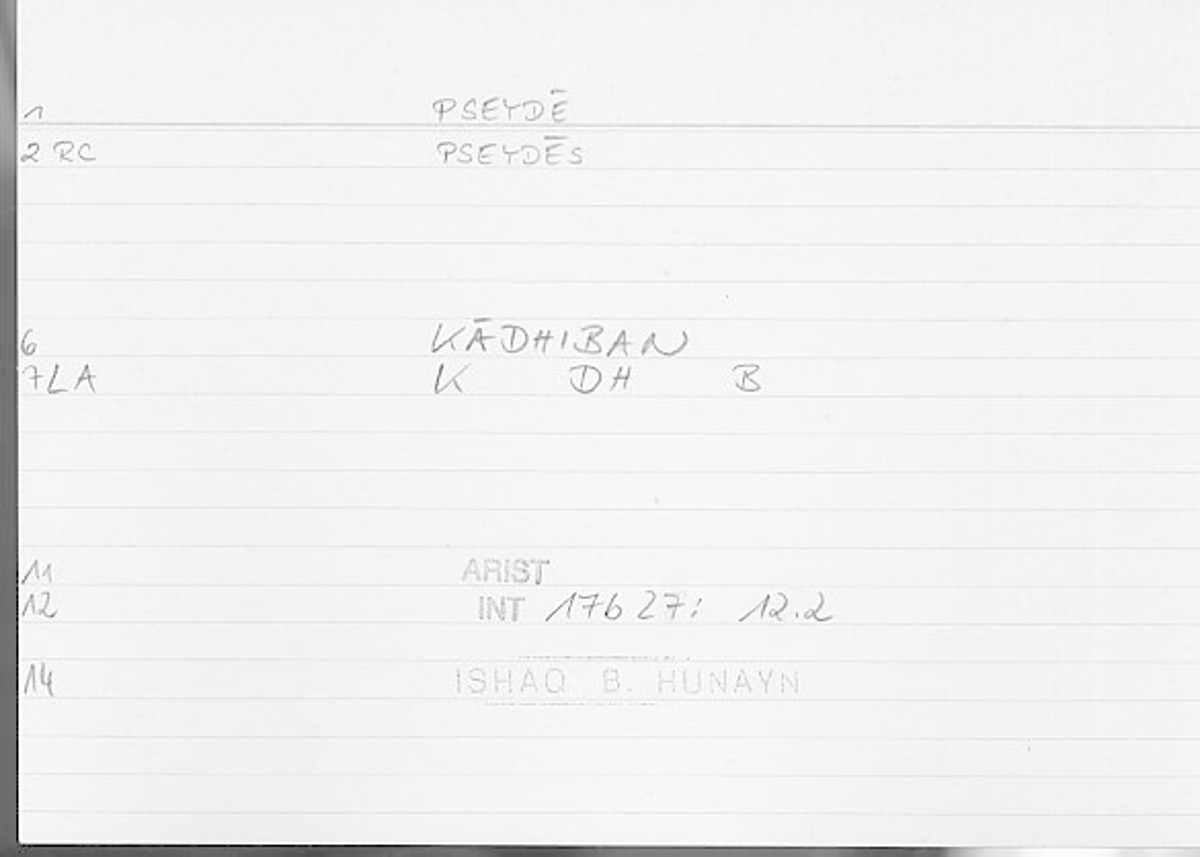 1 PSEYDĒ
2 RC PSEYDĒS
6 KĀDHIBAN
7 LA K DH B
11 ARIST
12 INT 17b27: 12.2
14 ISHAQ B. HUNAYN